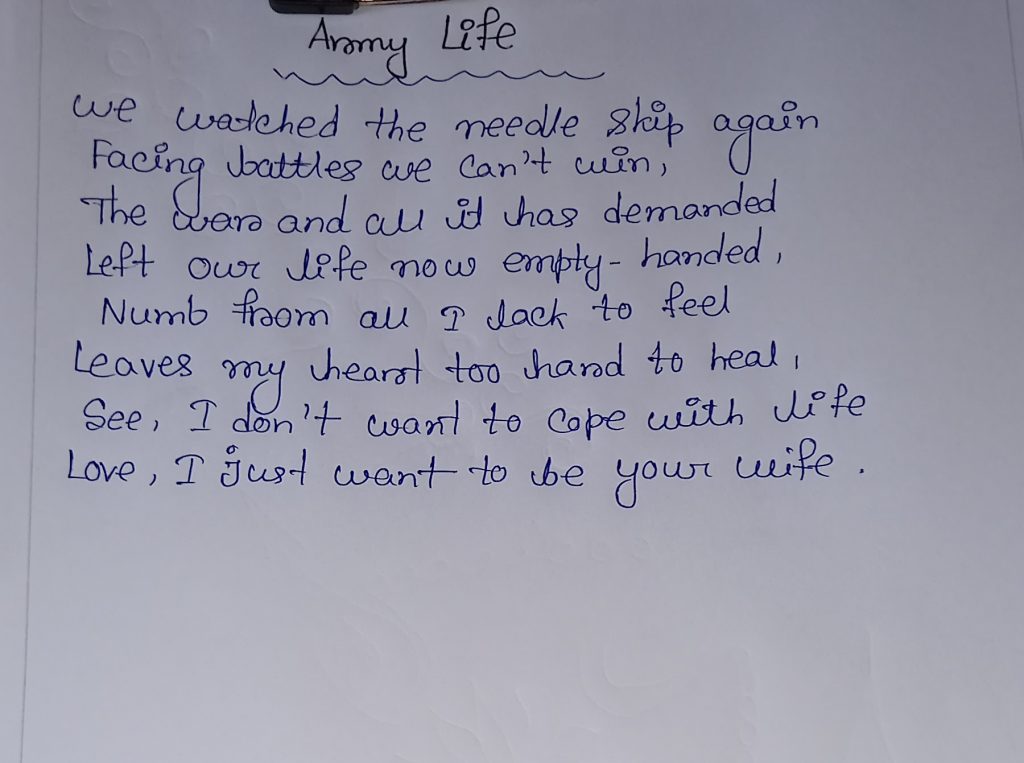 Army Life
we watched the needle skip again
Facing battles we can't win,
The war and all it has demanded
Left our life now empty-handed,
Numb from all I lack to feel
Leaves my heart too hard to heal,
See, I don't want to cope with life
Love, I just want to be your wife.